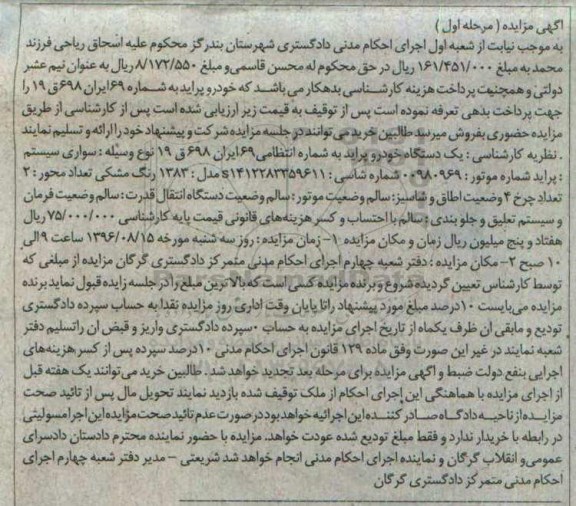 آگهی مزایده ( مرحله اول )
به موجب نیابت از شعبه اول اجرای احکام مدنی دادگستری شهرستان بندرگز محکوم علیه اسحاق ریاحی فرزند
محمد به مبلغ ۱۶۱/۴۵۱/۰۰۰ ریال در حق محکوم له محسن قاسمی و مبلغ ۸/۱۷۲/۵۵۰ ریال به عنوان نیم عشر
دولتی و همچنین پرداخت هزینه کارشناسی بدهکار می باشد که خودرو پراید به شماره ۶۹ ایران ۶۹۸ ق ۱۹ را
جهت پرداخت بدهی تعرفه نموده است پس از توقیف به قیمت زیر ارزیابی شده است پس از کارشناسی از طریق
مزایده حضوری بفروش میرسد طالبین خرید می توانند در جلسه مزایده شرکت و پیشنهاد خود را ارائه و تسلیم نمایند
. نظریه کارشناسی : یک دستگاه خودرو پراید به شماره انتظامی ۶۹ ایران ۶۹۸ ق ۱۹ نوع وسیله : سواری سیستم
: پراید شماره موتور : ۰۰۹۸۰۹۶۹ شماره شاسی : s۱۴۱۲۲۸۳۳۵۹۶۱۱ مدل : ۱۳۸۳ رنگ مشکی تعداد محور : ۲
تعداد چرخ ۴ وضعیت اطاق و شاسی: سالم وضعیت موتور : سالم وضعیت دستگاه انتقال قدرت : سالم وضعیت فرمان
و سیستم تعلیق و جلو بندی : سالم با احتساب و کسر هزینه های قانونی قیمت پایه کارشناسی ۷۵/۰۰۰/۰۰۰ ریال
هفتاد و پنج میلیون ریال زمان و مکان مزایده ۱- زمان مزایده : روز سه شنبه مورخه ۱۳۹۶/۰۸/۱۵ ساعت ۹ الی
۱۰ صبح ۲- مکان مزایده : دفتر شعبه چهارم اجرای احکام مدنی متمرکز دادگستری گرگان مزایده از مبلغی که
توسط کارشناس تعیین گردیده شروع و برنده مزایده کسی است که بالاترین مبلغ را در جلسه زایده قبول نماید برنده
مزایده می بایست ۱۰ درصد مبلغ مورد پیشنهاد را تا پایان وقت اداری روز مزایده نقدا به حساب سپرده دادگستری
تودیع و مابقی ان ظرف یکماه از تاریخ اجرای مزایده به حساب ۰سپرده دادگستری واریز و قبض ان راتسلیم دفتر
شعبه نمایند در غیر این صورت وفق ماده ۱۲۹ قانون اجرای احکام مدنی ۱۰ درصد سپرده پس از کسر هزینه های
اجرایی بنفع دولت ضبط و اگهی مزایده برای مرحله بعد تجدید خواهد شد . طالبین خرید می توانند یک هفته قبل
از اجرای مزایده با هماهنگی این اجرای احکام از ملک توقیف شده بازدید نمایند تحویل مال پس از تائید صحت
مزایده از ناحیه دادگاه صادر کننده این اجرائیه خواهد بود در صورت عدم تائید صحت مزایده این اجرا مسولیتی
در رابطه با خریدار ندارد و فقط مبلغ تودیع شده عودت خواهد. مزایده با حضور نماینده محترم دادستان دادسرای
عمومی و انقلاب گرگان و نماینده اجرای احکام مدنی انجام خواهد شد شریعتی – مدیر دفتر شعبه چهارم اجرای
احکام مدنی متمرکز دادگستری گرگان